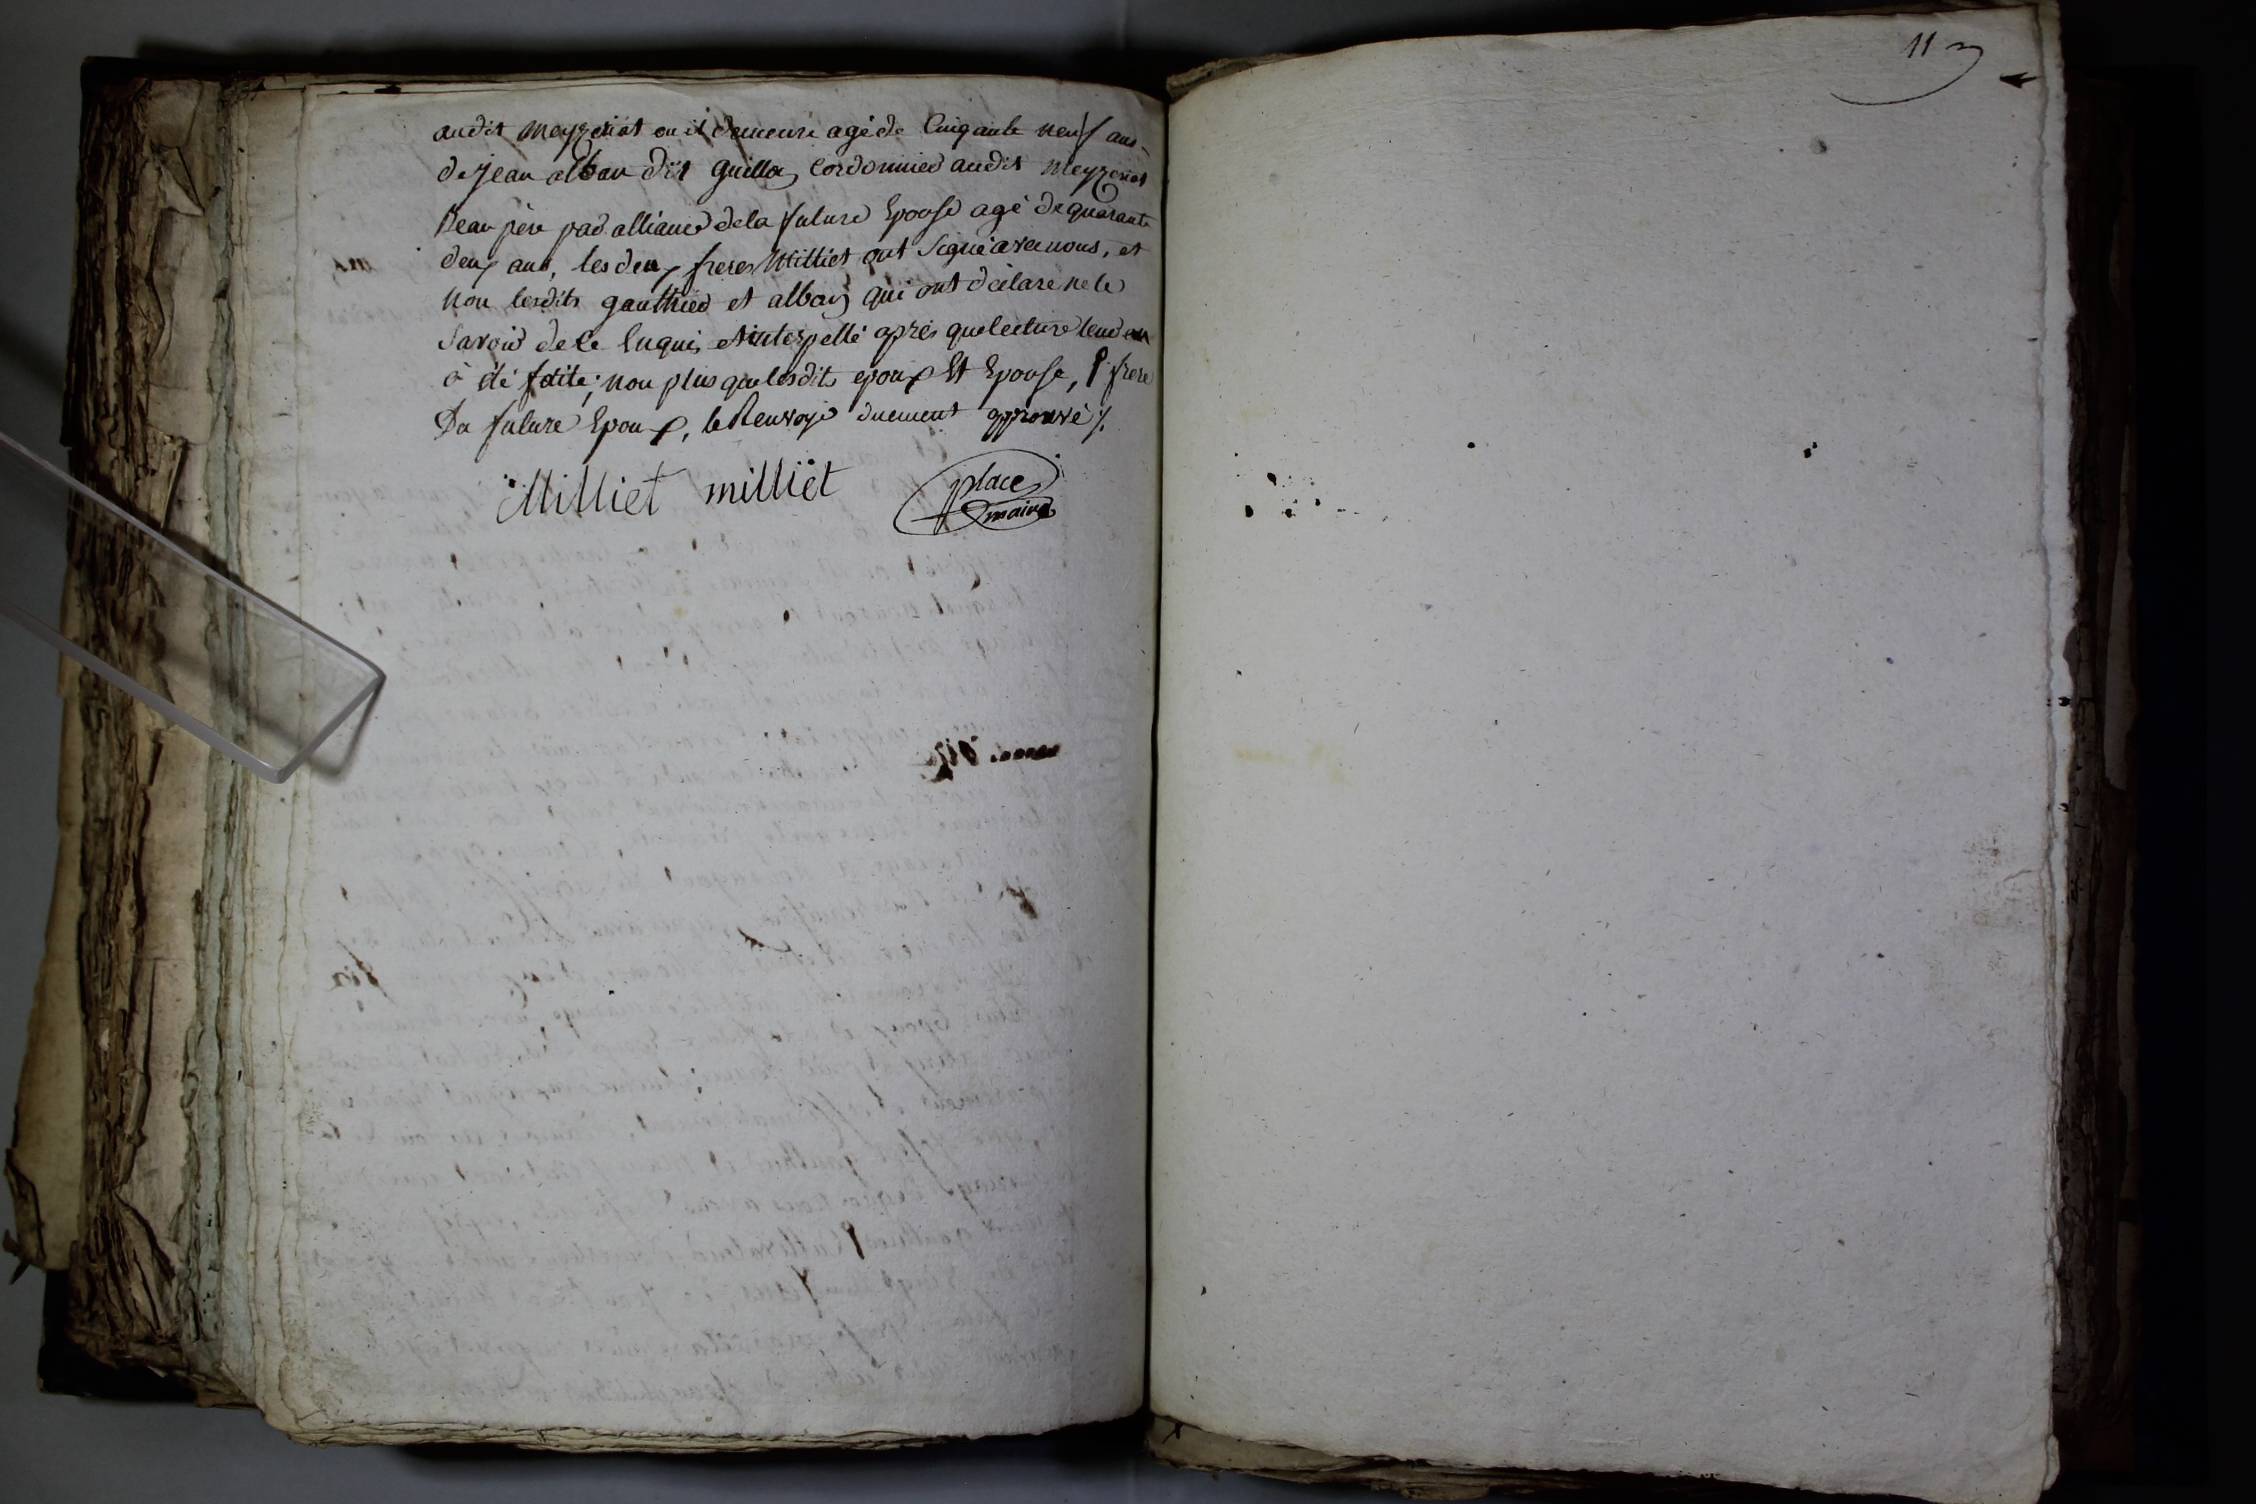 audit Meyzeriat ou il demeure agé de Cinqante neuf ans
de jean alban dit Guilla, Cordonnier audit Meyzeriat
Beau père par alliance de la future Epouse agé de quarante
deux ans, les deux freres Milliet ont Signé avec nous, et
Non lesdits gauthier et alban qui ont déclaré ne le
Savoir de ce Enquis et interpellé après que lecture leur en
à été faite; non plus que lesdits epoux Et Epouse, & frere
Du future Epoux, le Renvoye duement approuvé ./.
Milliet milliet place
maire
11